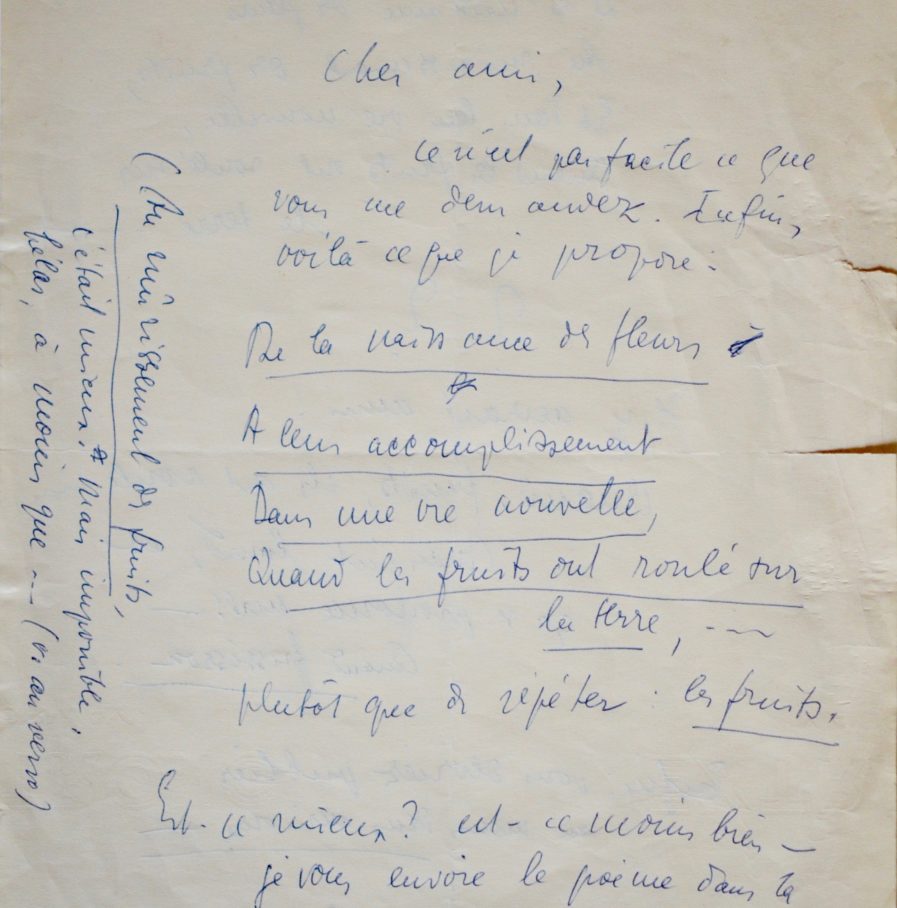 Cher ami,
ce n'est pas facile ce que
vous me demandez. Enfin,
voilà ce que je propose :
De la naissance des fleurs
A leur accomplissement
Dans une vie nouvelle,
Quand les fruits ont roulé sur
la terre, ---
plutôt que de répéter : les fruits.
Est-ce mieux ? est-ce moins bien –
je vous envoie le poème dans la
(Au mûrissement des fruits,
c'était mieux. Mais impossible,
hélas, à moins que --- (v. au verso)